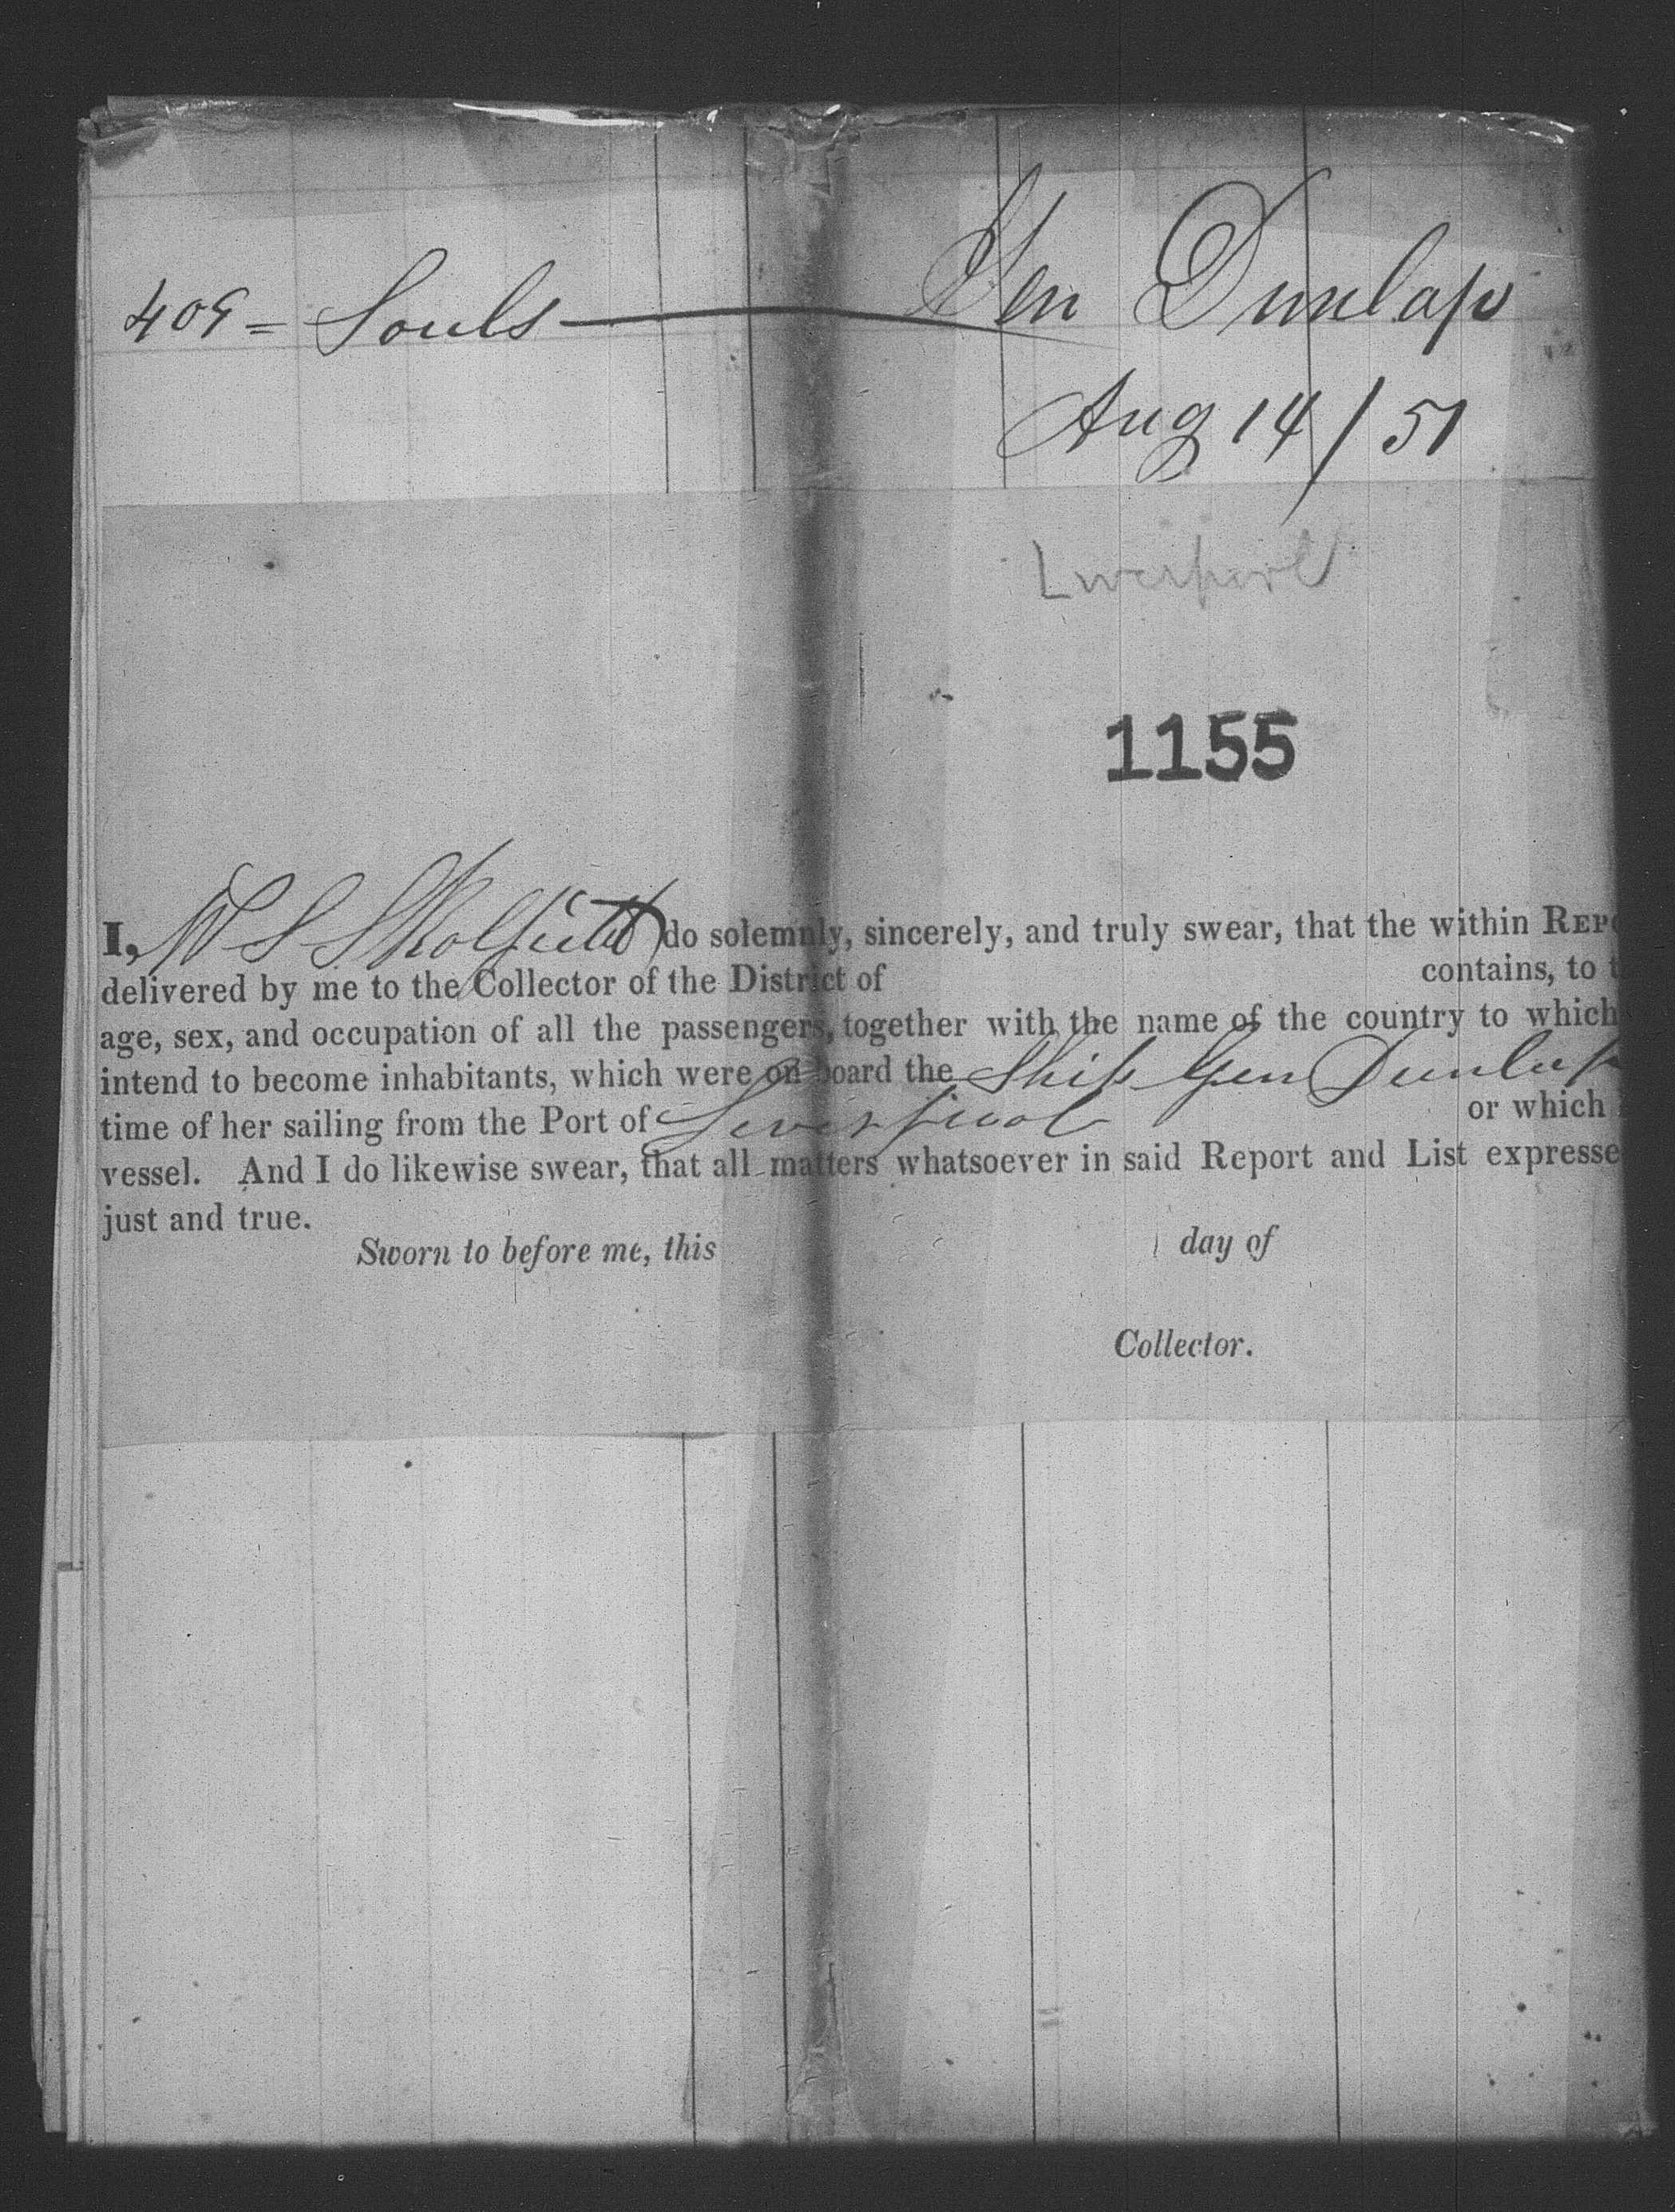 409 = Souls — Gen Dunlap
Aug 14/51
Liverpool
1155
I, W S Skolfield do solemnly, sincerely, and truly swear, that the within REP
delivered by me to the Collector of the District of contains, to t
age, sex, and occupation of all the passengers, together with the name of the country to which
intend to become inhabitants, which were on board the Ship Gen Dunlap
time of her sailing from the Port of Liverpool or which
vessel. And I do likewise swear, that all matters whatsoever in said Report and List expresse
just and true.
Sworn to before me, this day of
Collector.